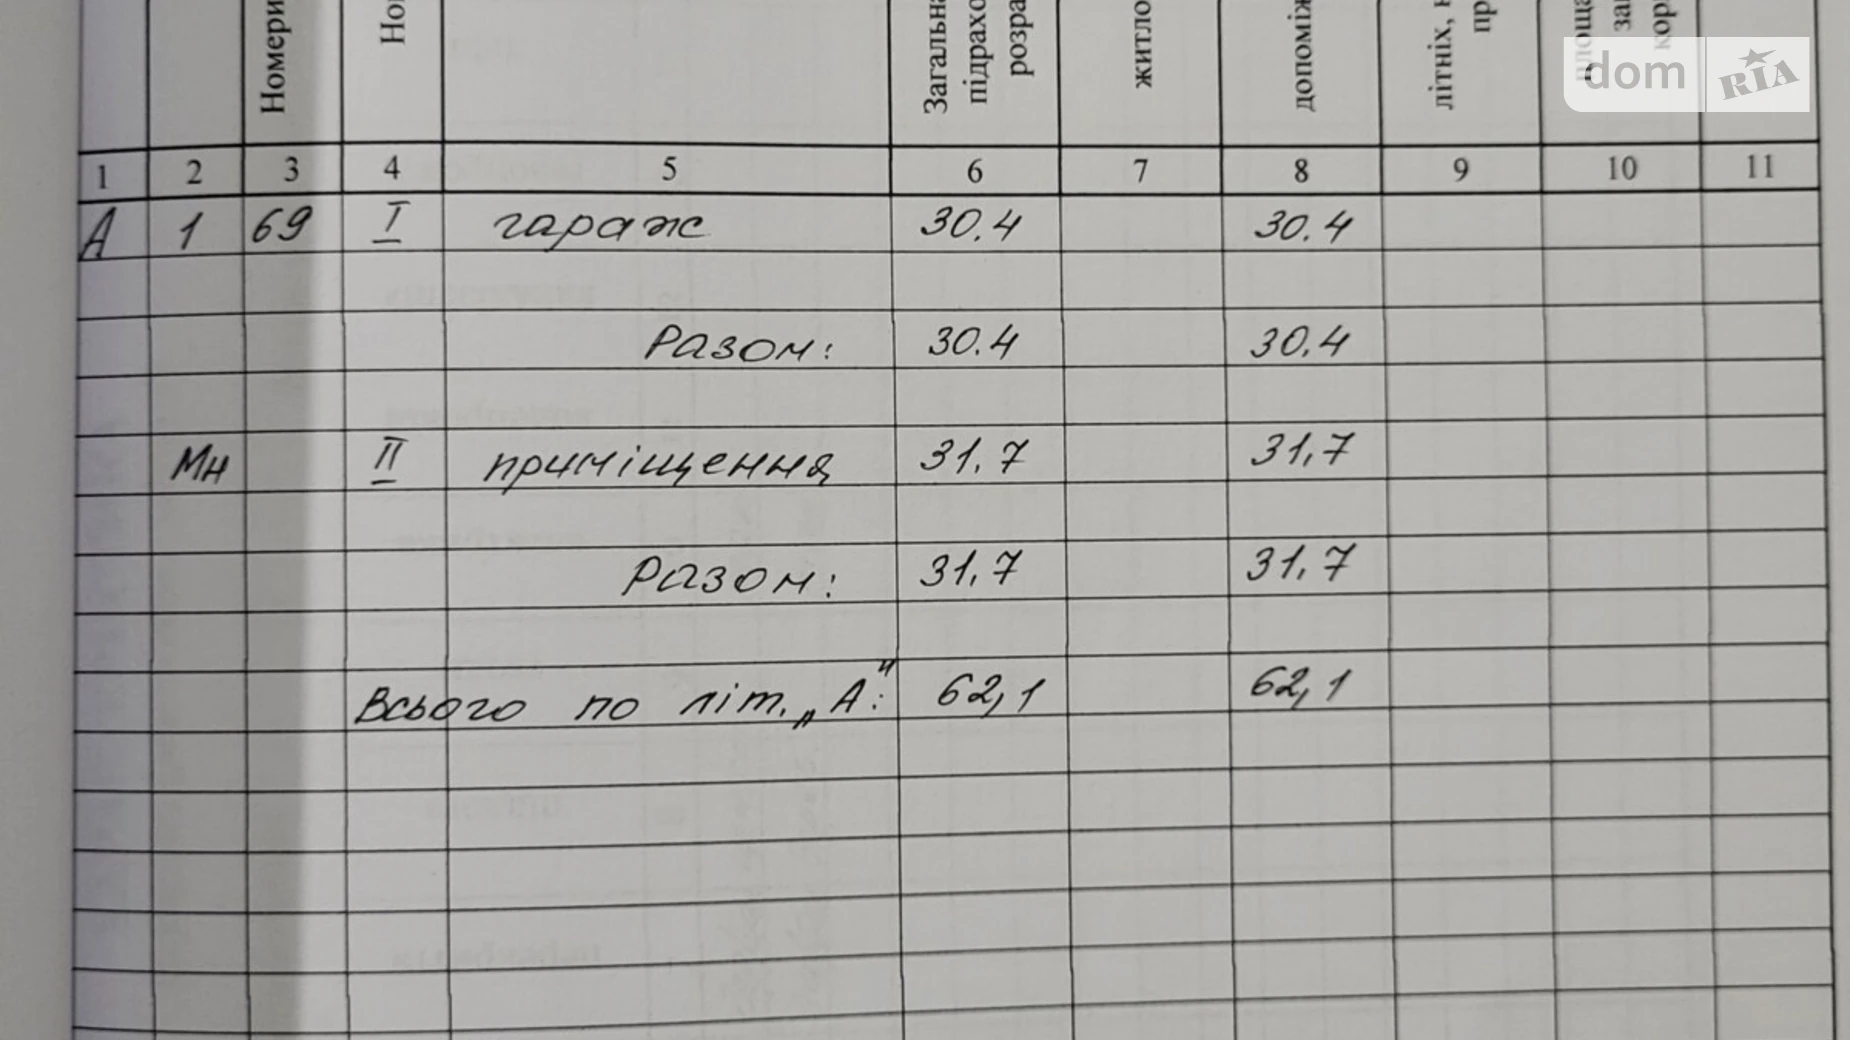 Номери
Загальна
підрахо
розра
житло
допоміж
літніх,
пр
площа
за
кор
dom RIA
1 2 3 4 5 6 7 8 9 10 11
А 1 69 I гараж 30.4 30.4
Разом: 30.4 30.4
Мн II приміщення 31,7 31,7
Разом: 31,7 31,7
Всього по літ. „А": 62,1 62,1